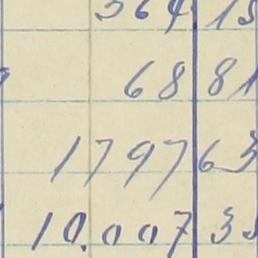 364 13
68 81
1797 63
10.007 3